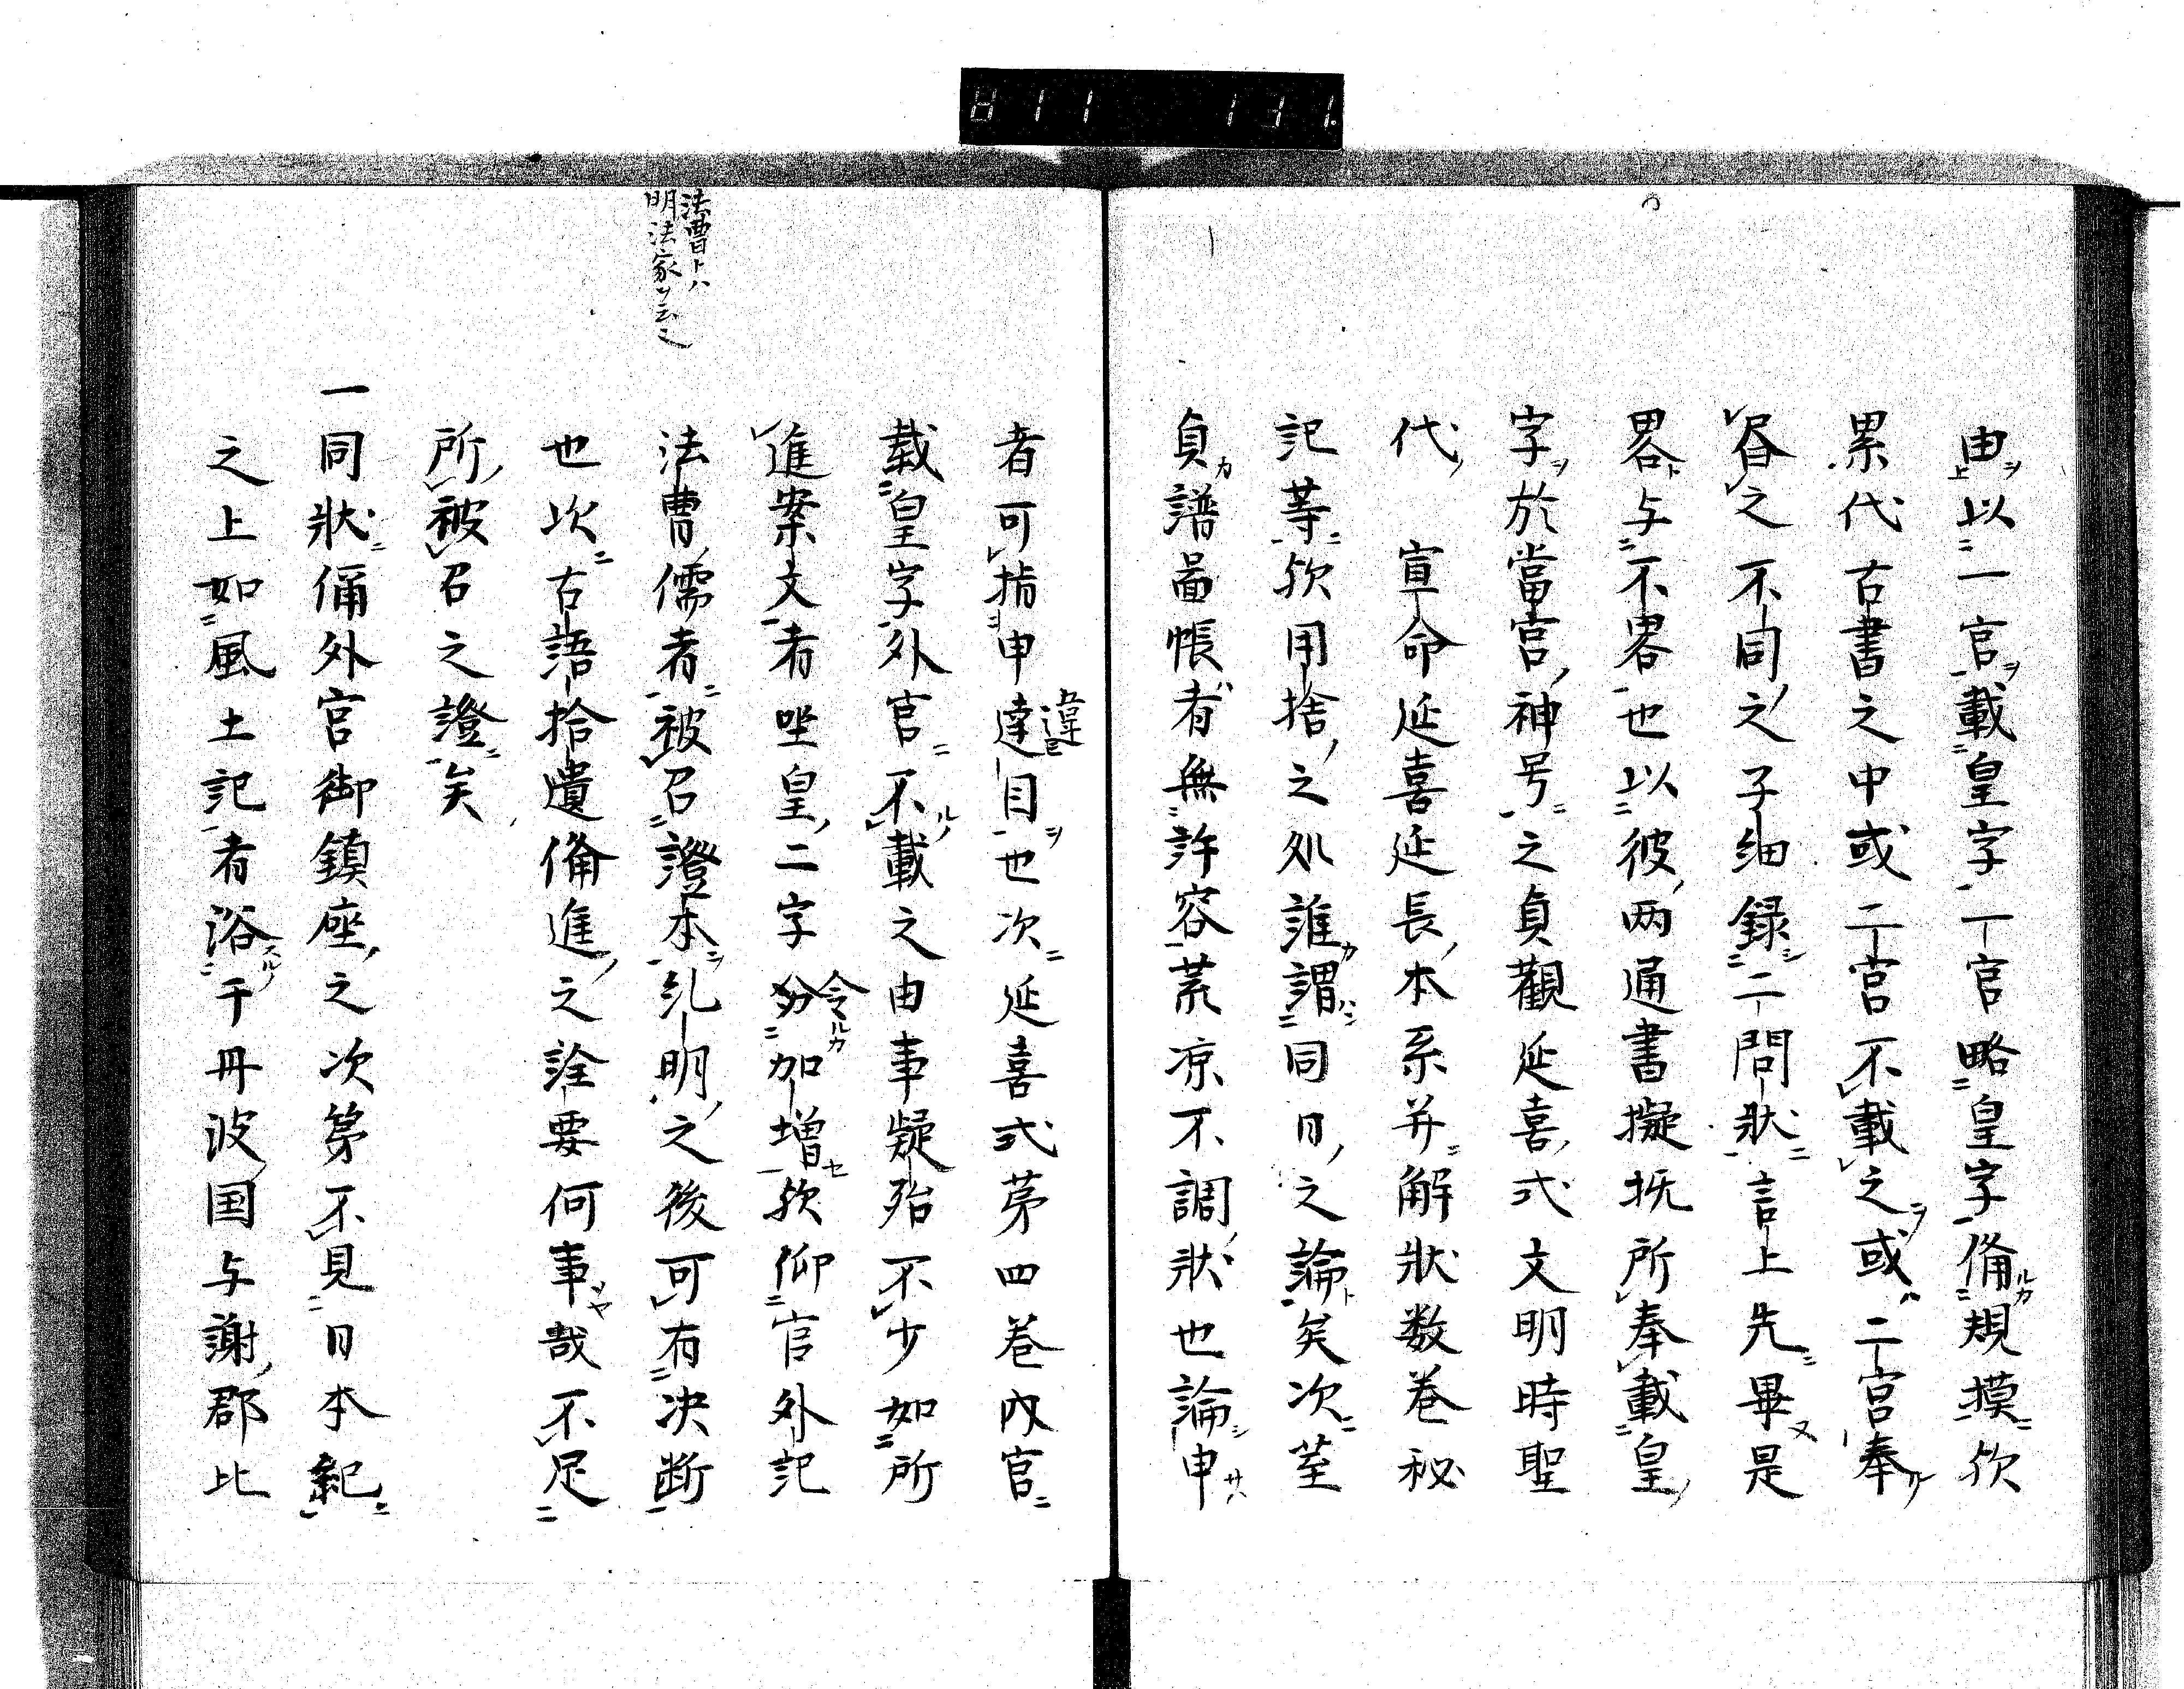 811 131
由以一宮載皇字一宮略皇字備規摸欤
累代古書之中或二宮不載之或二宮奉
之不同之子細録二問状言上先畢是
畧与不畧也以彼両通書擬抚所奉載皇
字於當宮神号之貞觀延喜式文明時聖
代 宣命延喜延長本系并解状数巻秘
記等欤用捨之処誰謂同日之論矣次至
貞譜啚帳者無許容荒凉不調状也論申
者可指申達目也次延喜式苐四巻内宮
違
載皇字外宮不載之由事疑殆不少如所
進案文者坐皇二字加増欤仰官外記
令
法曹儒者被召證本糺明之後可有决断
也次古語拾遺備進之詮要何事哉不足
所被召之證矣
一同状偁外宮御鎮座之次第不見日本紀
之上如風土記者浴于丹波国与謝郡比
法曹トハ
明法家ヲ云也